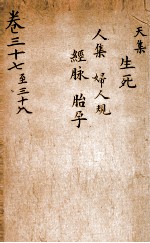 天集
生死
人集 婦人規
經脉 胎孕
卷三十七至三十八